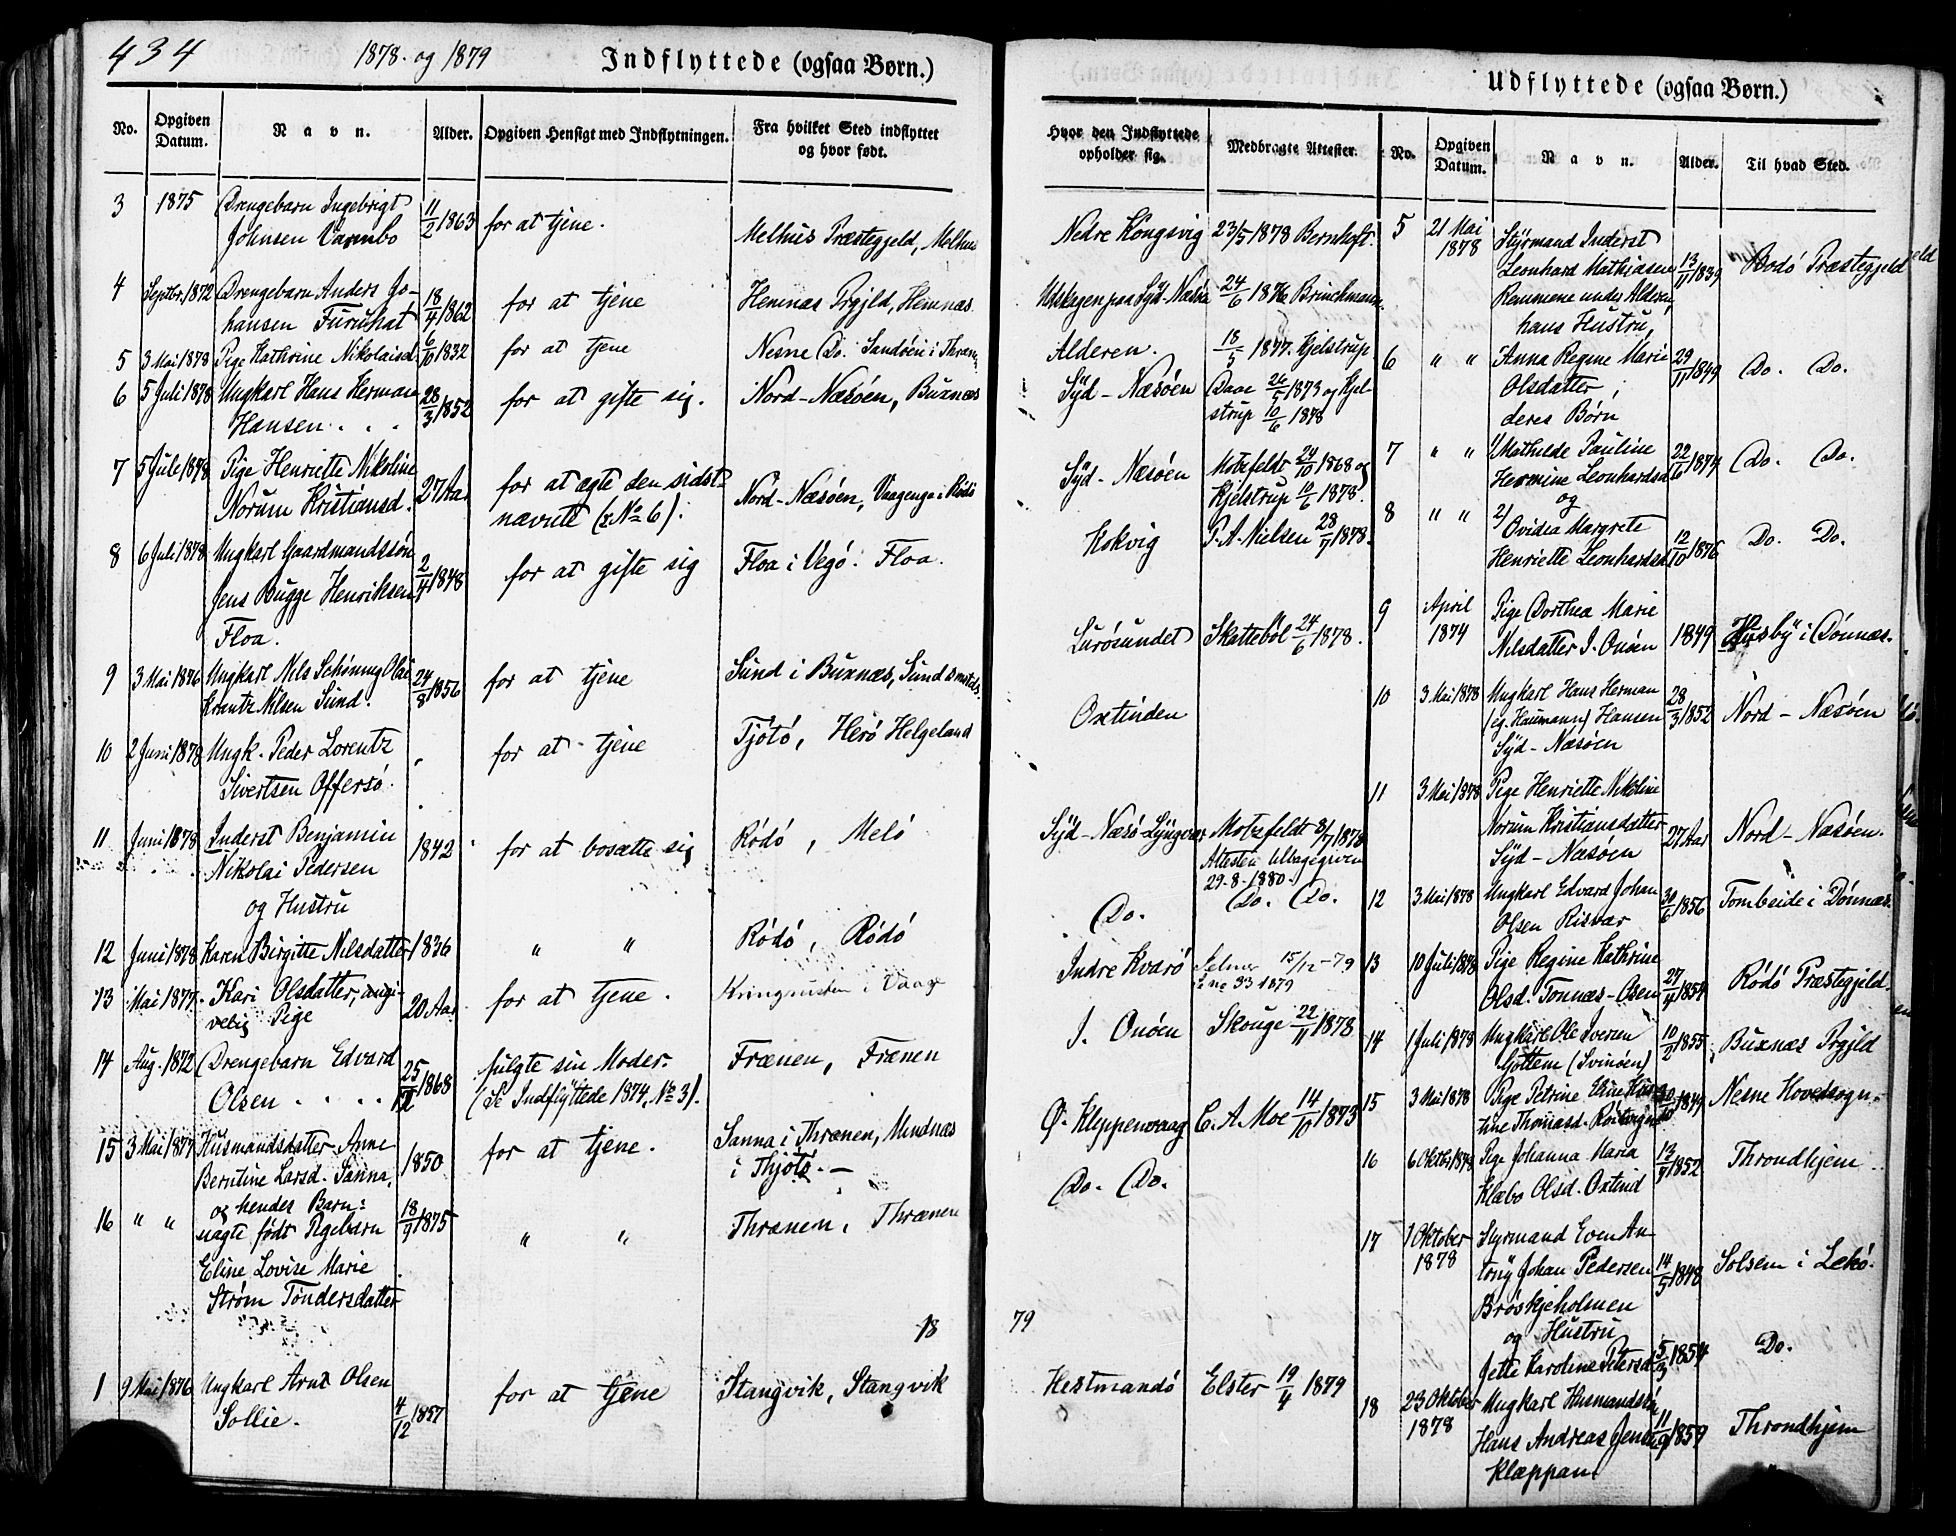 434
1878. og 1879
Indflyttede (ogsaa Børn.)
No. Opgiven Datum. Navn. Alder. Opgiven Hensigt med Indflytningen. Fra hvilket Sted indflyttet og hvor født.
3 1875 Drengebarn Ingebrigt 11/2 1863 for at tjene.
Johnsen Varmbo Melhus Præstegjeld, Melhus
4 Septbr. 1872 Drengebarn Anders Jo- 18/4 1862 for at tjene Hemnæs Prgjld, Hemnæs
hansen Furuhat
5 3 Mai 1878 Pige Kathrine Nikolaisd. 6/10 1832 for at tjene Nesne Do. Sandøen i Thræn.
6 5 Juli 1878 Ungkarl Hans Herman 28/3 1852 for at gifte sig. Nord-Næsøen, Buxnæs
Hansen . . .
7 5 Juli 1878 Pige Henriette Nikoline 27 Aar for at ægte den sidst-
Norum Kristiansd. nævnte (: No 6). Nord-Næsøen, Vaagenge i Rødø
8 6 Juli 1878 Ungkarl Gaardmandssøn 2/4 1848 for at gifte sig Floa i Vegø. Floa.
Jens Bugge Henriksen
Floa.
9 3 Mai 1876 Ungkarl Nils Schønning Olai 24/8 1856 for at tjene Sund i Buxnæs,
Krantz Nilsen Sund.
10 2 Juni 1878 Ungk. Peder Lorentz for at tjene Tjøtø, Herø Helgeland
Sivertsen Offersø.
11 Juni 1878 Inderst Benjamin 1842 for at bosætte sig Rødø, Melø
Nikolai Pedersen
og Hustru
12 Juni 1878 Karen Birgitte Nilsdatter 1836 " " Rødø, Rødø
13 Mai 1877 Kari Olsdatter, angi- 20 Aar for at tjene. i Vaage
velig Pige
14 Aug. 1872 Drengebarn Edvard 25/12 1868 fulgte sin Moder. Frænen, Frænen
Olsen . . . . (Se Indflyttede 1874, No 3).
15 3 Mai 1877 Husmandsdatter Anne 1850 for at tjene. Sanna i Thrænen, Mindnæs
Berntine Larsd. Sanna, i Thjøtø. —
og hendes Barn:
16 " " uægte født Pigebarn 18/9 1875 " " Thrænen, Thrænen
Eline Lovise Marie
Strøm Tøndersdatter
18
1 9 Mai 1876 Ungkarl Arnt Olsen 4/12 1857 for at tjene Stangvik, Stangvik
Sollie.
Udflyttede (ogsaa Børn.)
Hvor den Indflyttede opholder sig. Medbragte Attester. No. Opgiven Datum. Navn. Alder. Til hvad Sted.
Nedre Kongsvig 23/5 1878 Bernhoft.
Utskagen paa Syd-Næsø 24/6 1876 Brinchmann.
Alderen. 18/5 1877. Kjelstrup
Syd-Næsøen Daae 26/5 1873 og Kjel-
strup 10/6 1878
Syd-Næsøen Motzfeldt 24/10 1868 og
Kjelstrup 10/6 1878.
Kokvig P. A. Nielsen 28/7 1878.
Lurøsundet Skattebøl 24/6 1878.
Oxtinden
Syd-Næsø-Lyngvær Motzfeldt 8/7 1878
Attesten tilbagegiven
29-8-1880.
Do. Do. Do.
Indre Kvarø 15/12-79
1879
I. Onøen Skouge 22/11 1878
Ø. Kleppenvaag C. A. Moe 14/10 1873
Do. Do.
79
Hestmandø Elster 19/4 1879
5 21 Mai 1878 Styrmand Inderst
Leonhard Mathiasen 13/11 1839 Bodø Præstegjeld
Remmene under Alderen,
hans Hustru,
6 " " Anna Regine Marie 29/11 1849 Do. Do.
Olsdatter,
deres Børn
7 " " 1/ Mathilde Pauline 22/10 1874 Do. Do.
Hermine Leonhardsd.
og
8 " " 2/ Ovidia Margrete 12/10 1876 Do. Do.
Henriette Leonhardsd.
9 April 1874 Pige Dorthea Marie
Nilsdatter I. Onøen 1849 Husby i Dønnæs.
10 3 Mai 1878 Ungkarl Hans Herman 28/3 1852 Nord-Næsøen
(eg. Haumann) Hansen
Syd-Næsøen
11 3 Mai 1878 Pige Henriette Nikoline
Norum Kristiansdatter 27 Aar Nord-Næsøen.
Syd-Næsøen
12 3 Mai 1878 Ungkarl Edvard Johan 30/6 1856 i Dønnæs.
Olsen Risvær
13 10 Juli 1878 Pige Regine Kathrine
Olsd. Tonnæs-Osen 27/4 1854 Rødø Præstegjeld.
14 1 Juli 1878 Ungkarl Ole Iversen 10/2 1855 Buxnæs Prgjld
Gjøttem (Svinøen)
15 3 Mai 1878 Pige Petrine Eline 1844 Nesne Hovedsogn.
tine Thomasd.
16 6 Oktbr. 1878 Pige Johanna Maria 13/9 1852 Throndhjem
Klæbo Olsd. Oxtind
17 1 Oktober 1878 Styrmand Even An-
tony Johan Pedersen 14/5 1848 Solsem i Lekø.
Brøskjeholmen
og Hustru
Jette Karoline Petersd. 5/3 1854 Do.
18 23 Oktober 1878 Ungkarl Husmandssøn
Hans Andreas Jensen 11/9 1859 Throndhjem
Klæppan